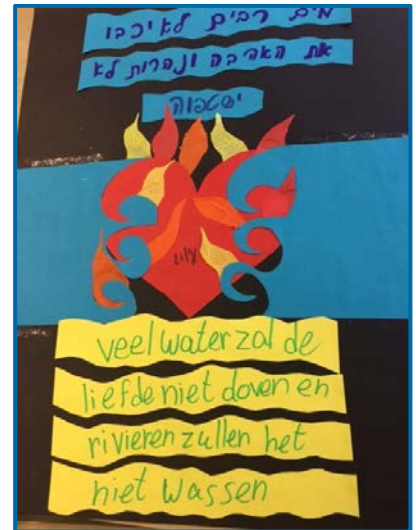 מים רבים לא יכבו
את האהבה ונהרות לא
ישטפוה
veel water zal de
liefde niet doven en
rivieren zullen het
niet wassen